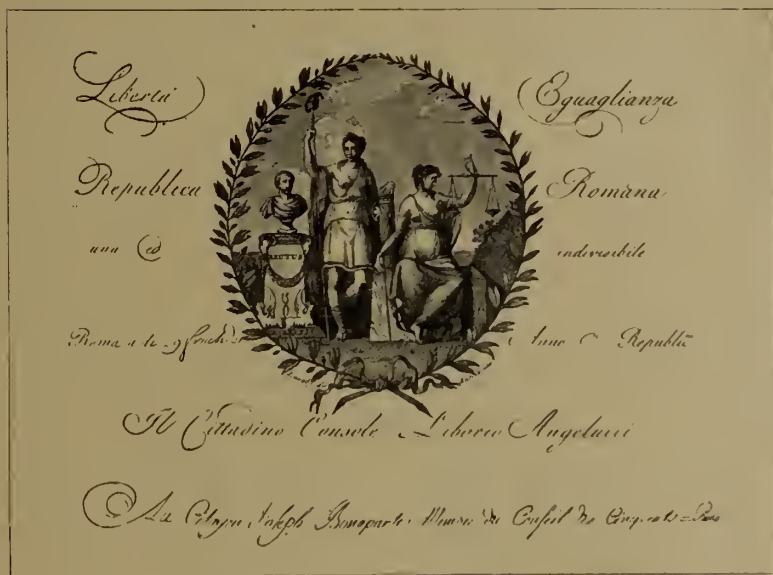 Libertà Eguaglianza
Republica Romana
una ed indivisibile
BRUTUS
Roma Anno Republi
Il Cittadino Console Liborio Angelucci
Au Citoyen Joseph Bonaparte Membre du Conseil des Cinq cents = Paris